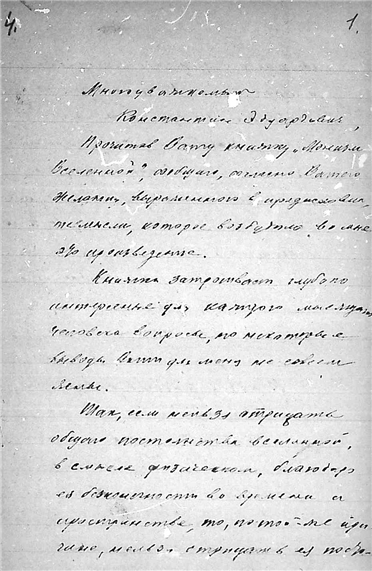 4. 1.
Многоуважаемый
Константин Эдуардович,
Прочитав Вашу книжку „Монизм
Вселенной", сообщаю, согласно Вашего
желания, выраженного в предисловии,
те мысли, которое возбудило во мне
это произведение.
Книжка затрогивает глубоко
интересные для каждого мыслящего
человека вопросы, но некоторые
выводы Ваши для меня не совсем
ясны.
Так, если нельзя отрицать
общего постоянства вселенной,
в смысле физическом, благодаря
ея безконечности во времени и
пространстве, то, по той-же при
чине, нельзя отрицать в ея